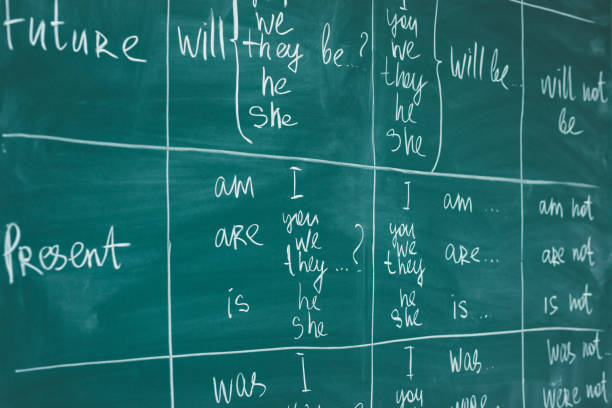 Future
will
we
they
he
she
be...?
you
we
they
he
she
will be...
will not
be
Present
am I
are
you
we
they...?
is
he
she
I am...
you
we
they
are...
he
she
is...
am not
are not
is not
was I
I was..
you
was not..
were not